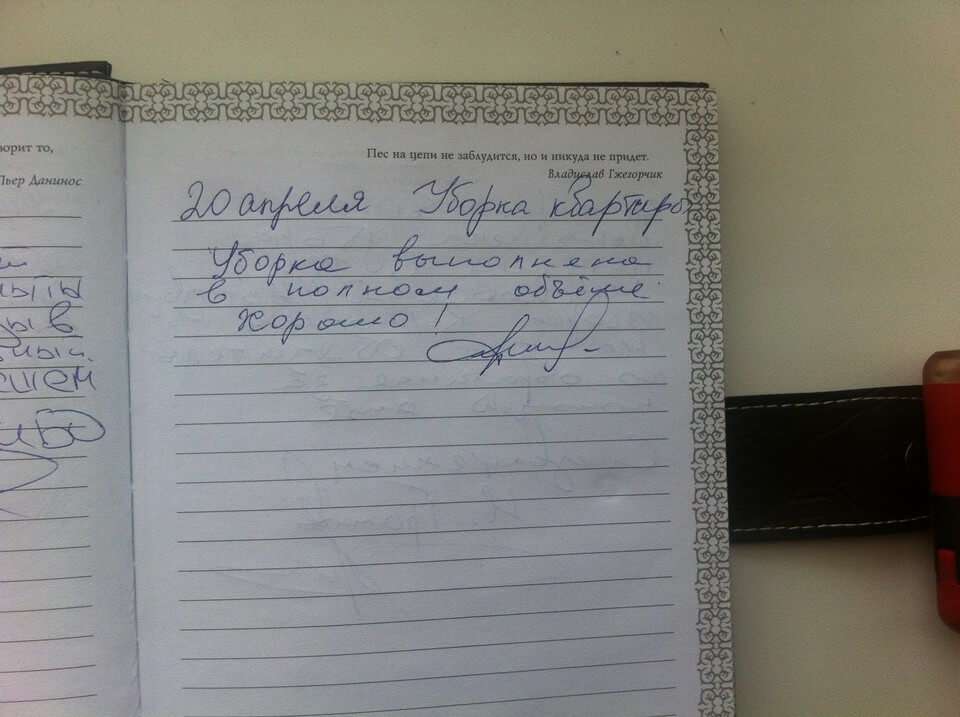 ворит то,
Пьер Данинос
Пес на цепи не заблудится, но и никуда не придет.
Владислав Гжегорчик
20 апреля Уборка квартиры
Уборка выполнена
в полном объёме.
Хорошо!